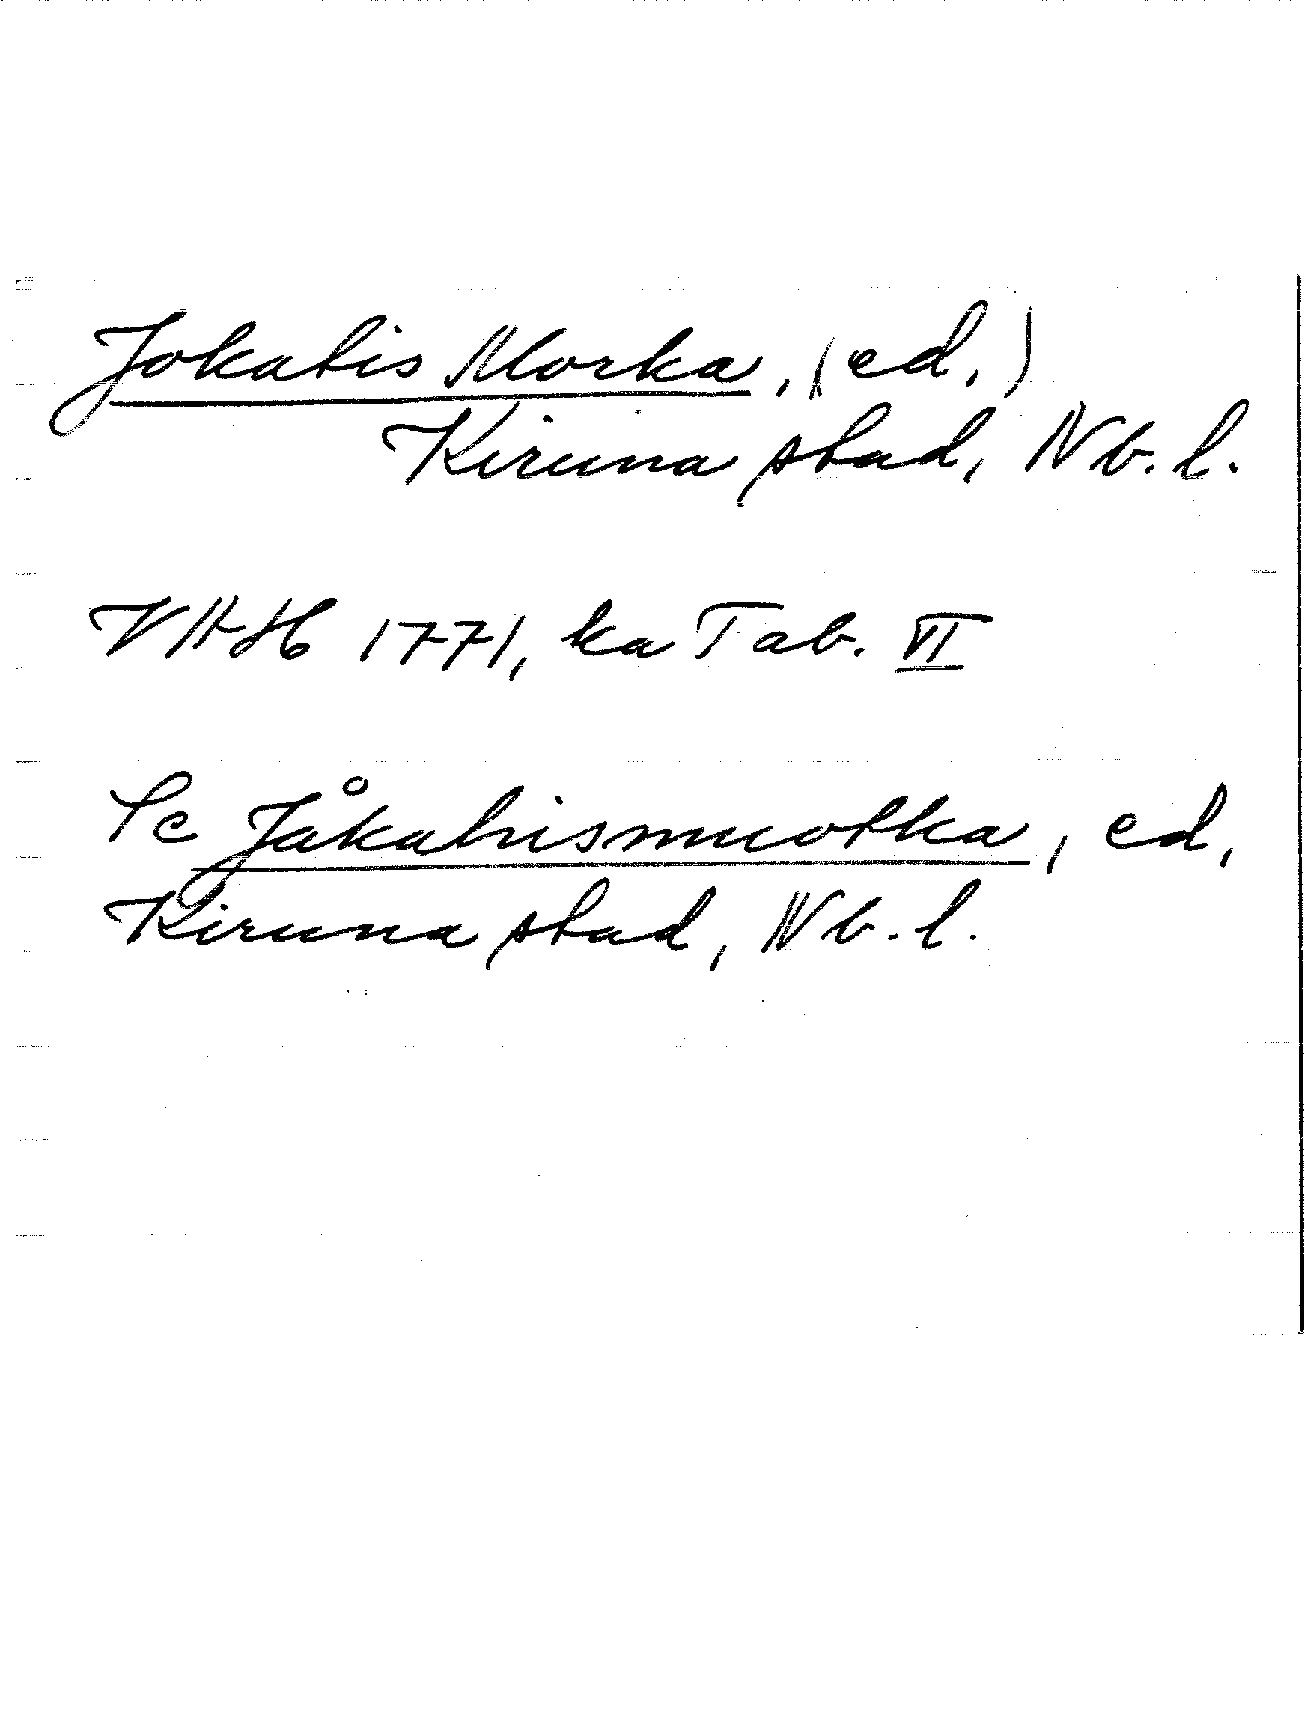 Jokatis Morka, (ed.)
Kiruna stad, Nb.l.
VHH 1771, ka Tab. VI
Se Jåkahismuotka, ed,
Kiruna stad, Nb.l.